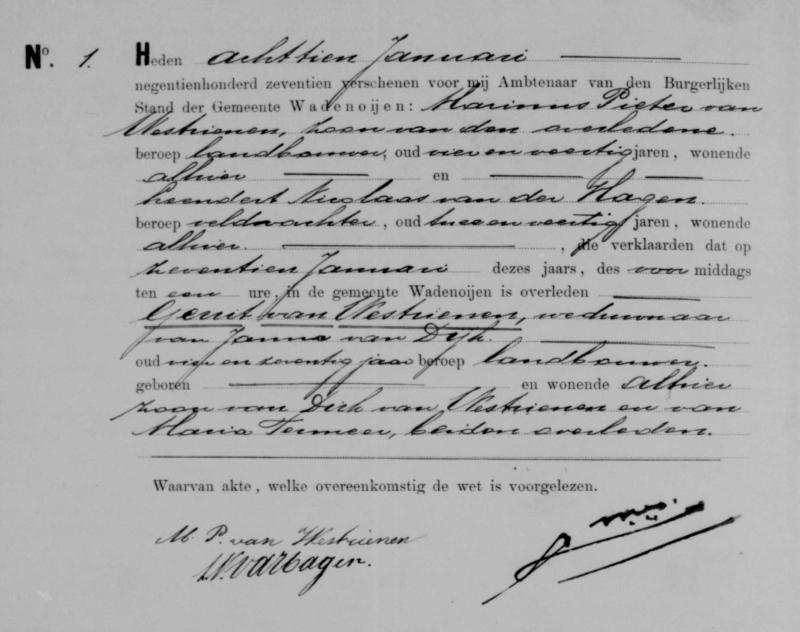 No. 1. Heden achttien Januari
negentienhonderd zeventien verschenen voor mij Ambtenaar van den Burgerlijken
Stand der Gemeente Wadenoijen: Marinus Pieter van
Westrienen, zoon van den overledene.
beroep landbouwer, oud vier en veertig jaren, wonende
alhier en
Leendert Nicolaas van der Hagen.
beroep veldwachter, oud twee en veertig jaren, wonende
alhier. , die verklaarden dat op
zeventien Januari dezes jaars, des voor middags
ten een ure, in de gemeente Wadenoijen is overleden
Gerrit van Westrienen, weduwnaar
van Janna van Dijk.
oud vier en zeventig jaar beroep landbouwer.
geboren en wonende alhier
zoon van Dirk van Westrienen en van
Maria Termeer, beiden overleden.
Waarvan akte, welke overeenkomstig de wet is voorgelezen.
M. P. van Westrienen